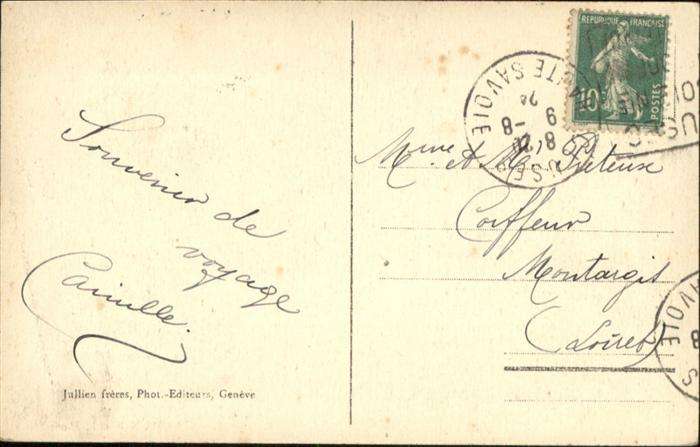 Souvenir de
voyage
Camille.
Jullien frères, Phot.-Editeurs, Genève
REPUBLIQUE FRANÇAISE
10
POSTES
HAUTE SAVOIE
Mme et Mr
Coiffeur
Montargis
(Loiret)